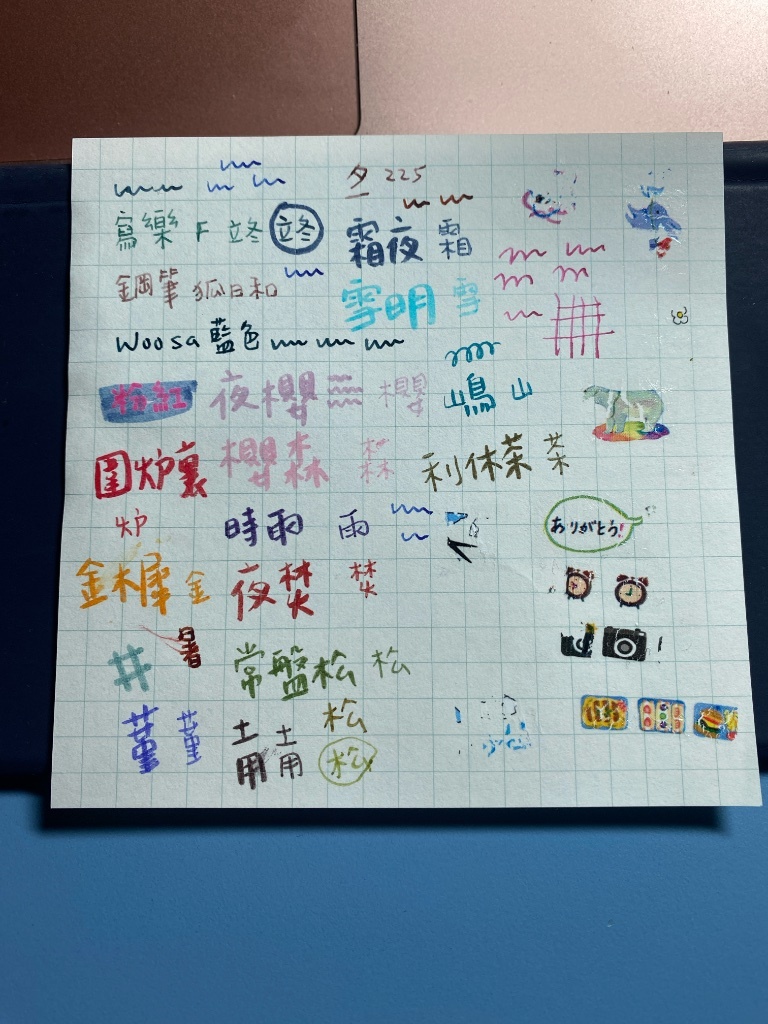 夕 225
寫樂 F 立冬 立冬
霜夜 霜
鋼筆 狐日和
雪明 雪
Woosa 藍色
嶋 山
粉紅 夜櫻 櫻
囲炉裏 櫻森 森
利休茶 茶
炉 時雨 雨
ありがとう!
金木犀 金 夜焚 焚
井 暑 常盤松 松
菫 菫 土用 土用 松
松